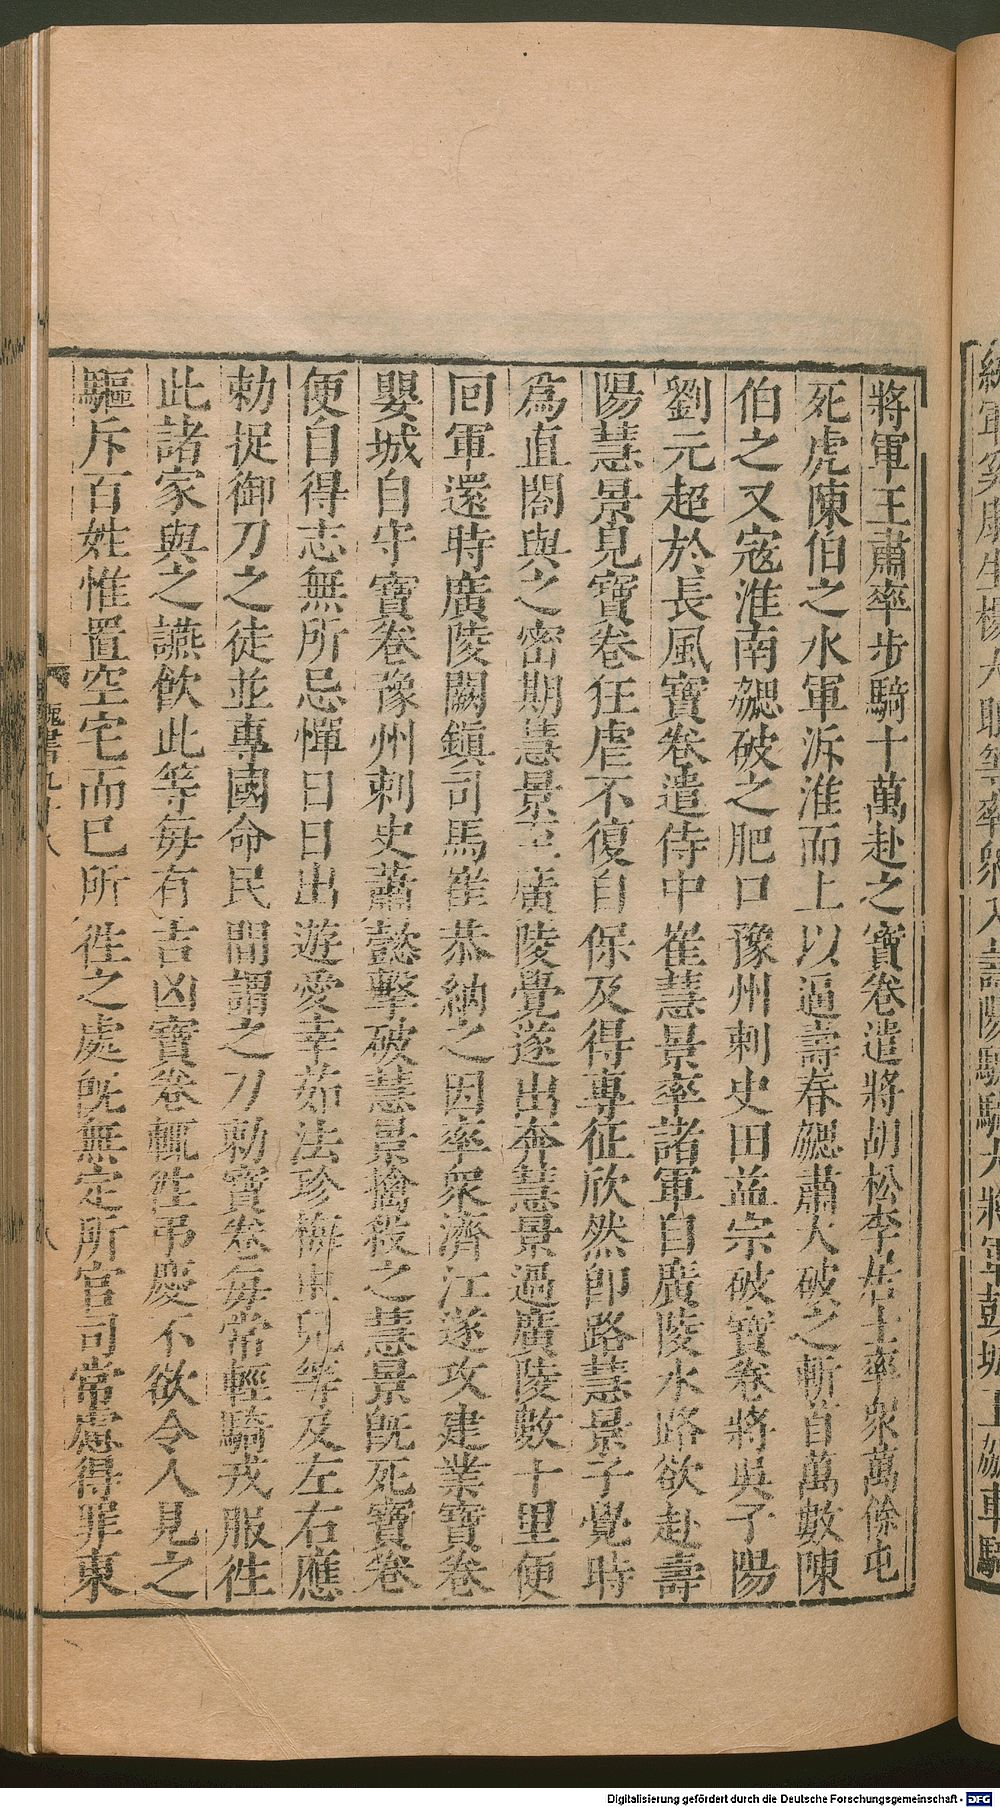 將軍王肅率步騎十萬赴之寶卷遣將胡松李居士率衆萬餘屯
死虎陳伯之水軍泝淮而上以逼壽春勰肅大破之斬首萬數陳
伯之又寇淮南勰破之肥口豫州刺史田益宗破寶卷將吳子陽
劉元超於長風寶卷遣侍中崔慧景率諸軍自廣陵水路欲赴壽
陽慧景見寶卷狂虐不復自保及得專征欣然即路慧景子覺時
爲直閤與之密期慧景至廣陵覺遂出奔慧景過廣陵數十里便
回軍還時廣陵闕鎮司馬崔恭納之因率衆濟江遂攻建業寶卷
嬰城自守寶卷豫州刺史蕭懿擊破慧景擒殺之慧景旣死寶卷
便自得志無所忌憚日日出遊愛幸茹法珍梅虫兒等及左右應
勑捉御刀之徒並專國命民間謂之刀勑寶卷每常輕騎戎服徃
此諸家與之讌飲此等每有吉凶寶卷輒徃弔慶不欲令人見之
驅斥百姓惟置空宅而已所徃之處旣無定所官司常慮得罪東
魏書九十八
八
Digitalisierung gefördert durch die Deutsche Forschungsgemeinschaft - DFG